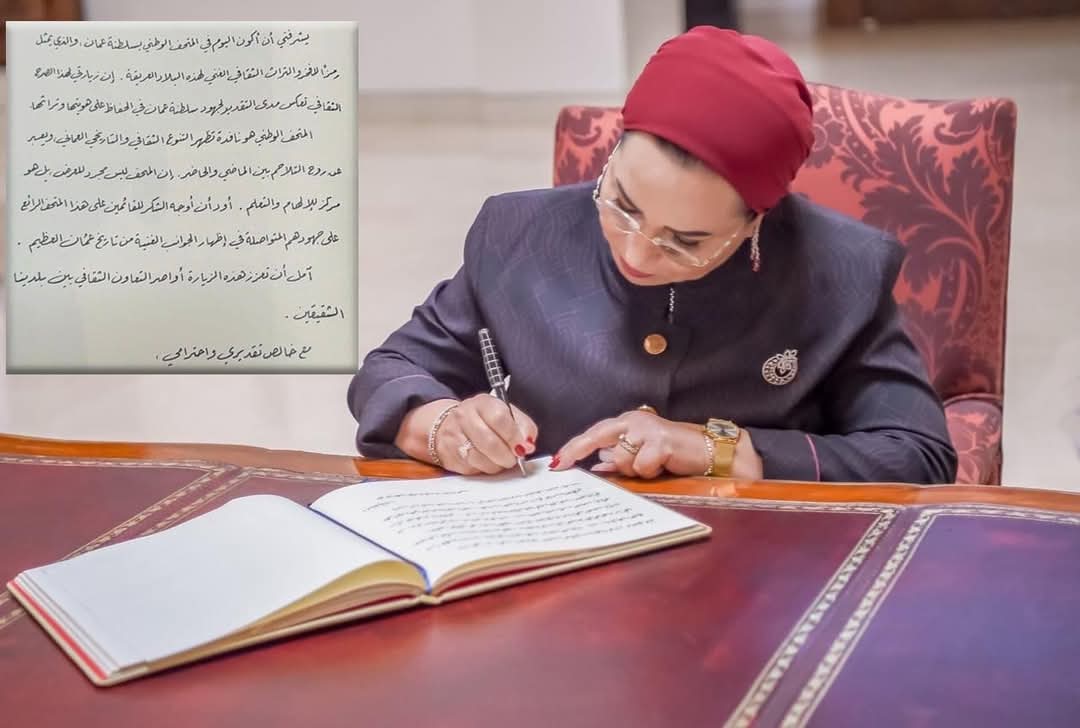 يشرفني أن أكون اليوم في المتحف الوطني بسلطنة عمان، والذي يمثل
رمزاً للفخر والتراث الثقافي الغني لهذه البلاد العريقة. إن زيارتي لهذا الصرح
الثقافي تعكس مدى التقدير لجهود سلطنة عمان في الحفاظ على هويتها وتراثها.
المتحف الوطني هو نافذة تظهر التنوع الثقافي والتاريخي العماني، ويعبر
عن روح التلاحم بين الماضي والحاضر. إن المتحف ليس مجرد للعرض بل هو
مركز للإلهام والتعلم. أود أن أوجه الشكر للقائمين على هذا المتحف الرائع
على جهودهم المتواصلة في إظهار الجوانب الغنية من تاريخ عُمان العظيم.
آمل أن تعزز هذه الزيارة أواصر التعاون الثقافي بين بلدينا
الشقيقين.
مع خالص تقديري واحترامي،